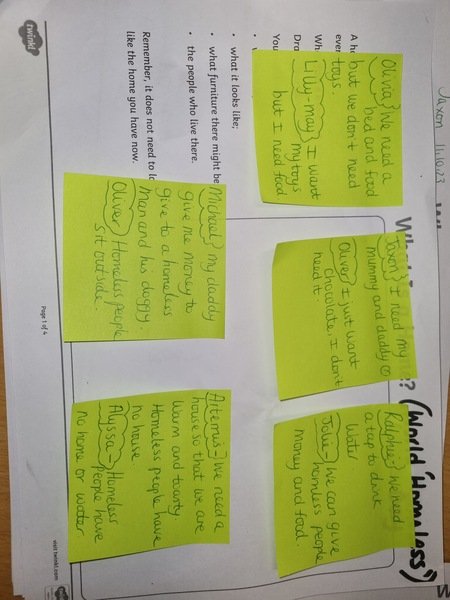 Jaxon 11.10.23
(World 'Homeless')
Olivia We need a
bed and food
but we don't need
toys.
Lilly-may I want
my toys
but I need food
Jaxon I need my
mummy and daddy
Oliver I just want
chocolate, I don't
need it
Ralphie We need
a tap to drink
water
Jolie - We can give
homless people
money and food.
what it looks like;
what furniture there might be
the people who live there.
Remember, it does not need to lo
like the home you have now.
Michael My daddy
give me money to
give to a homeless
man and his doggy
Oliver Homeless people
sit outside.
Artemis - We need a
house so that we are
warm and toasty
Homeless people have
no house
Alyssa - Homeless
people have
no home or water
twinkl
Page 1 of 4
visit twinkl.com